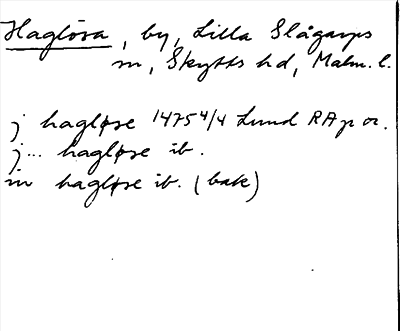 Haglösa, by, Lilla Slågarps
sn, Skytts hd, Malm. l.
j hagløse 1475 4/4 Lund RAp or.
j... hagløse ib.
in hagløse ib. (bak)